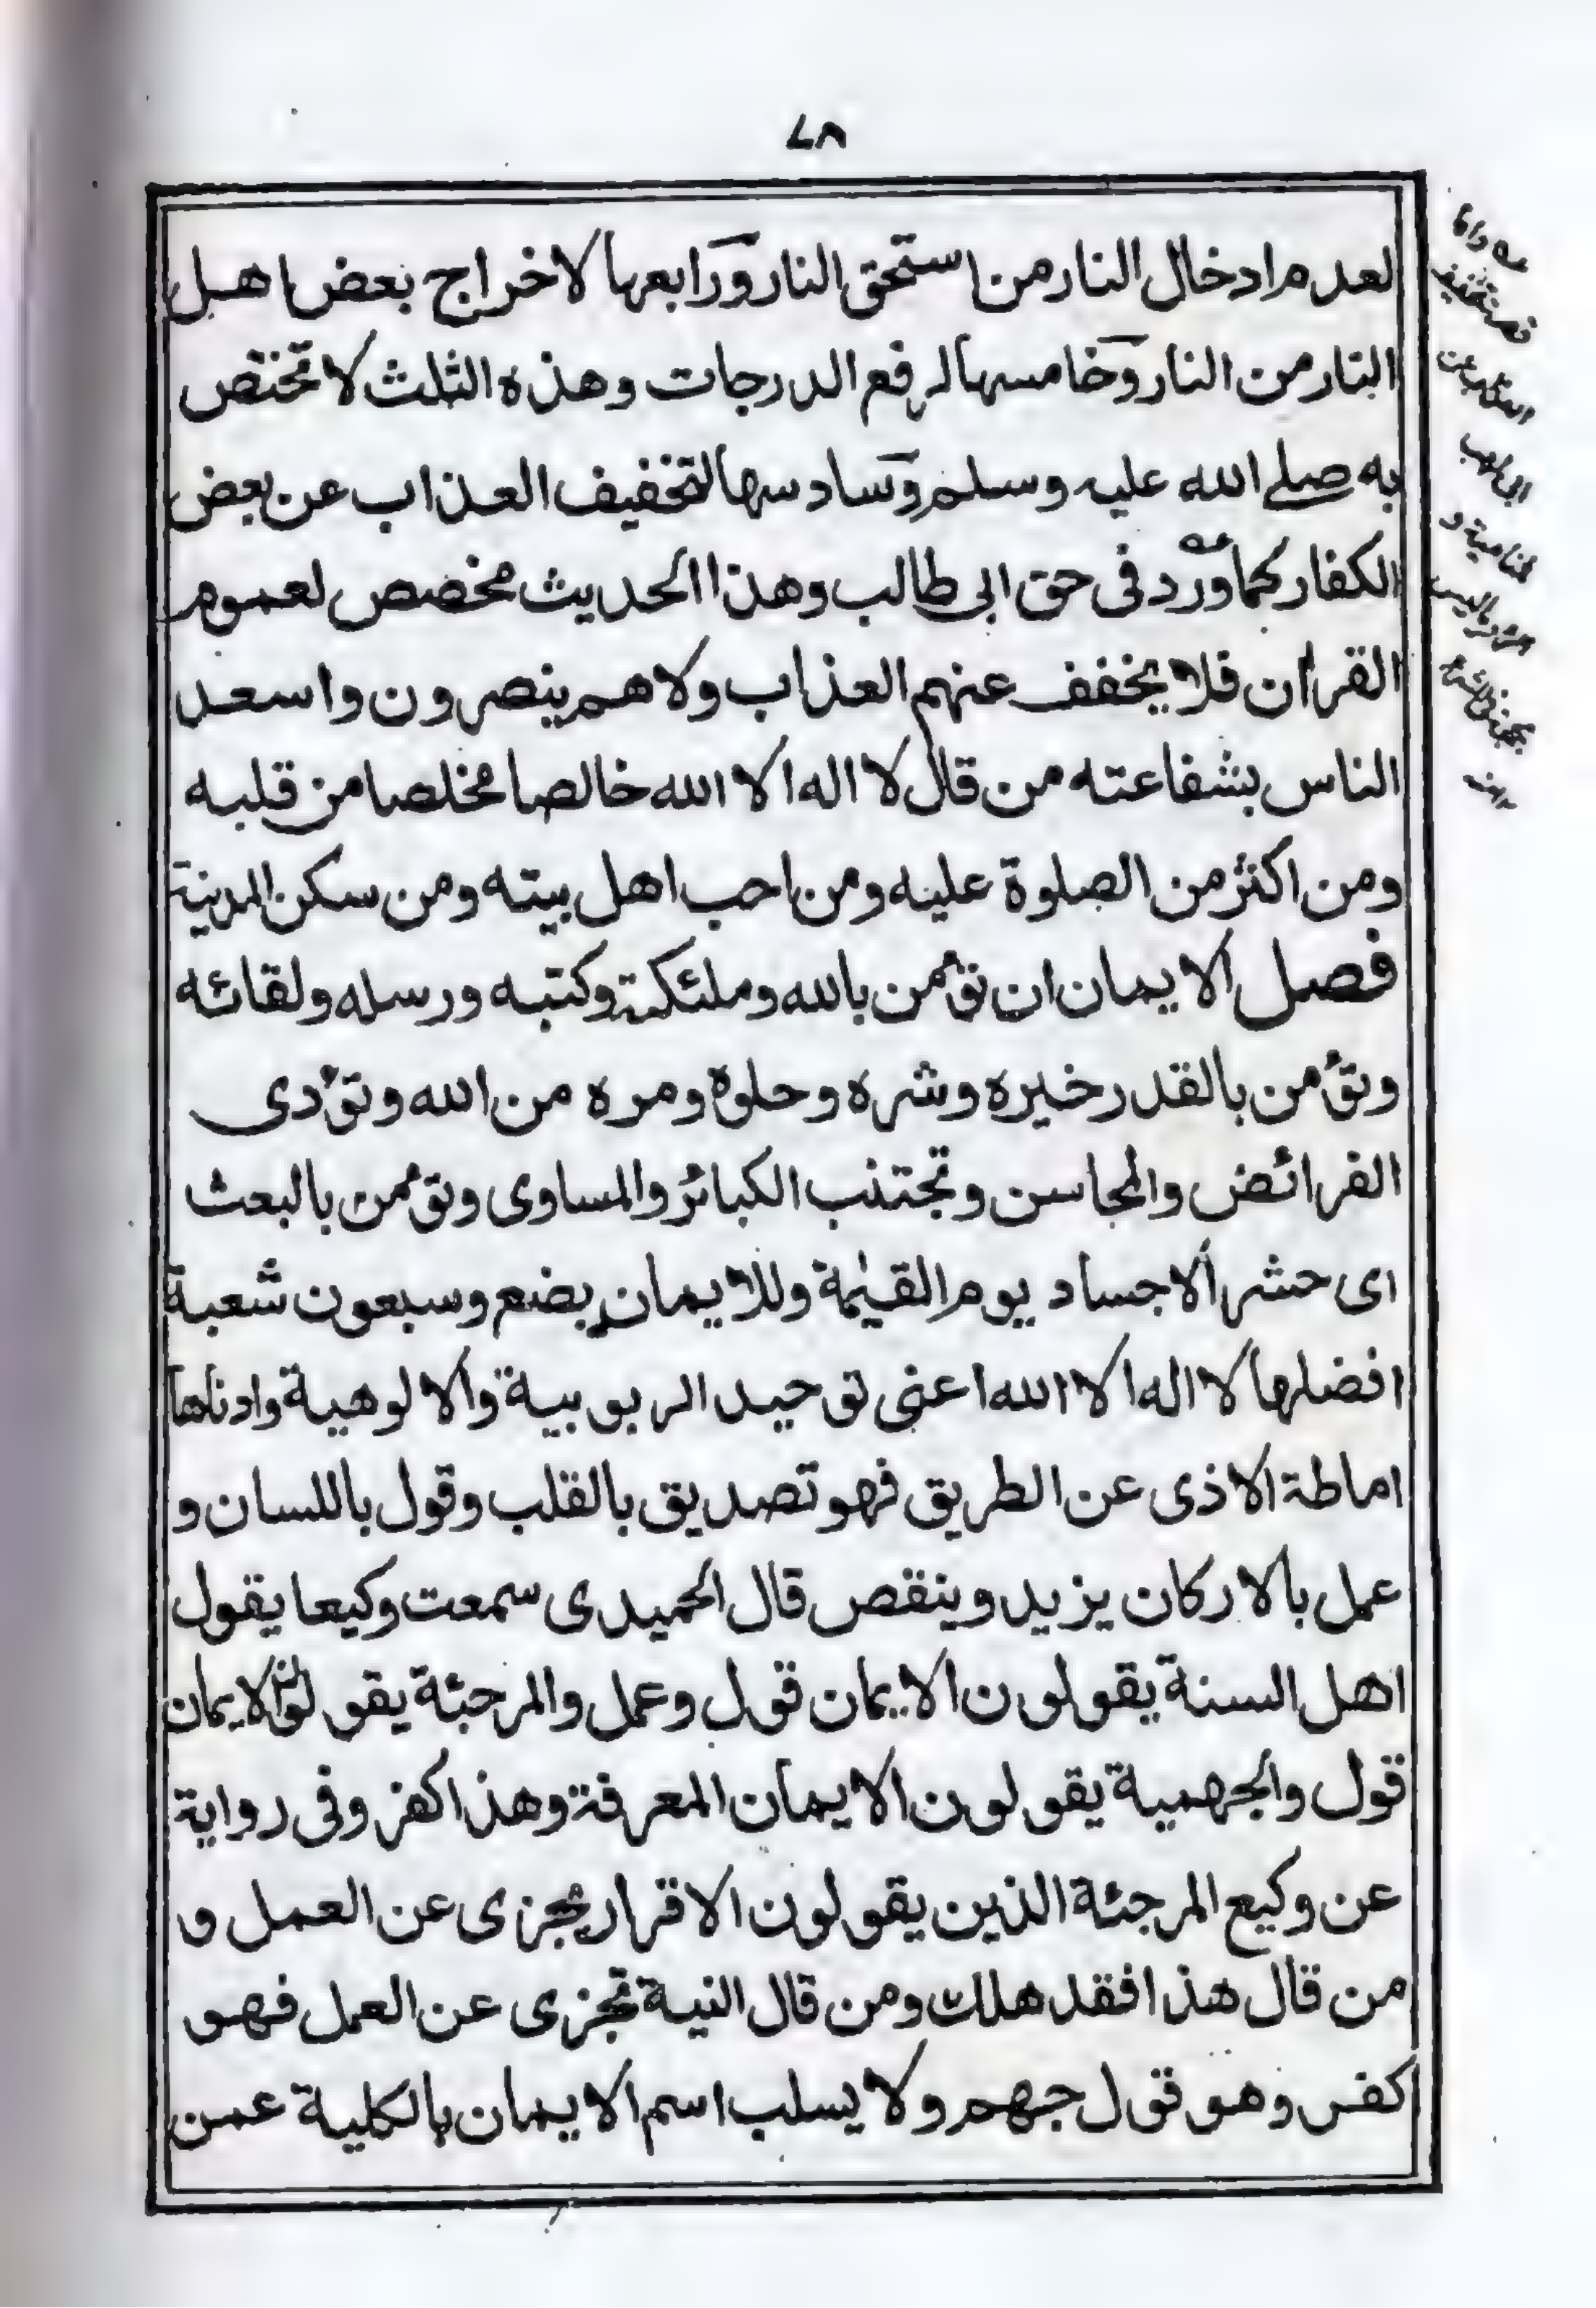 ٧٨
لعدم ادخال النار من استحق النار ورابعها لاخراج بعض اهل
النار من النار وخامسها لرفع الدرجات وهذه الثلث لا تختص
به صلے الله عليه وسلم وسادسها لتخفيف العذاب عن بعض
الكفار كما ورد فى حق ابى طالب وهذا الحديث مخصص لعموم
القران فلا يخفف عنهم العذاب ولا هم ينصرون واسعد
الناس بشفاعته من قال لا اله الا الله خالصا مخلصا من قلبه
ومن اكثر من الصلوة عليه ومن احب اهل بيته ومن سكن المدينة
فصل الايمان ان تؤمن بالله وملئكته وكتبه ورسله ولقائه
وتؤمن بالقدر خيره وشره وحلوه ومره من الله وتؤدى
الفرائض والمحاسن وتجتنب الكبائر والمساوى وتؤمن بالبعث
اى حشر الاجساد يوم القيٰمة وللايمان بضع وسبعون شعبة
افضلها لا اله الا الله اعنى توحيد الربوبية والالوهية وادناها
اماطة الاذى عن الطريق فهو تصديق بالقلب وقول باللسان و
عمل بالاركان يزيد وينقص قال الحميدى سمعت وكيعا يقول
اهل السنة يقولون الايمان قول وعمل والمرجئة يقولون الايمان
قول والجهمية يقولون الايمان المعرفة وهذا كفر وفى رواية
عن وكيع المرجئة الذين يقولون الاقرار يجزى عن العمل و
من قال هذا فقد هلك ومن قال النية تجزى عن العمل فهو
كفر وهو قول جهم ولا يسلب اسم الايمان بالكلية عمن
عه واما
العذاب عن
ابى لهب